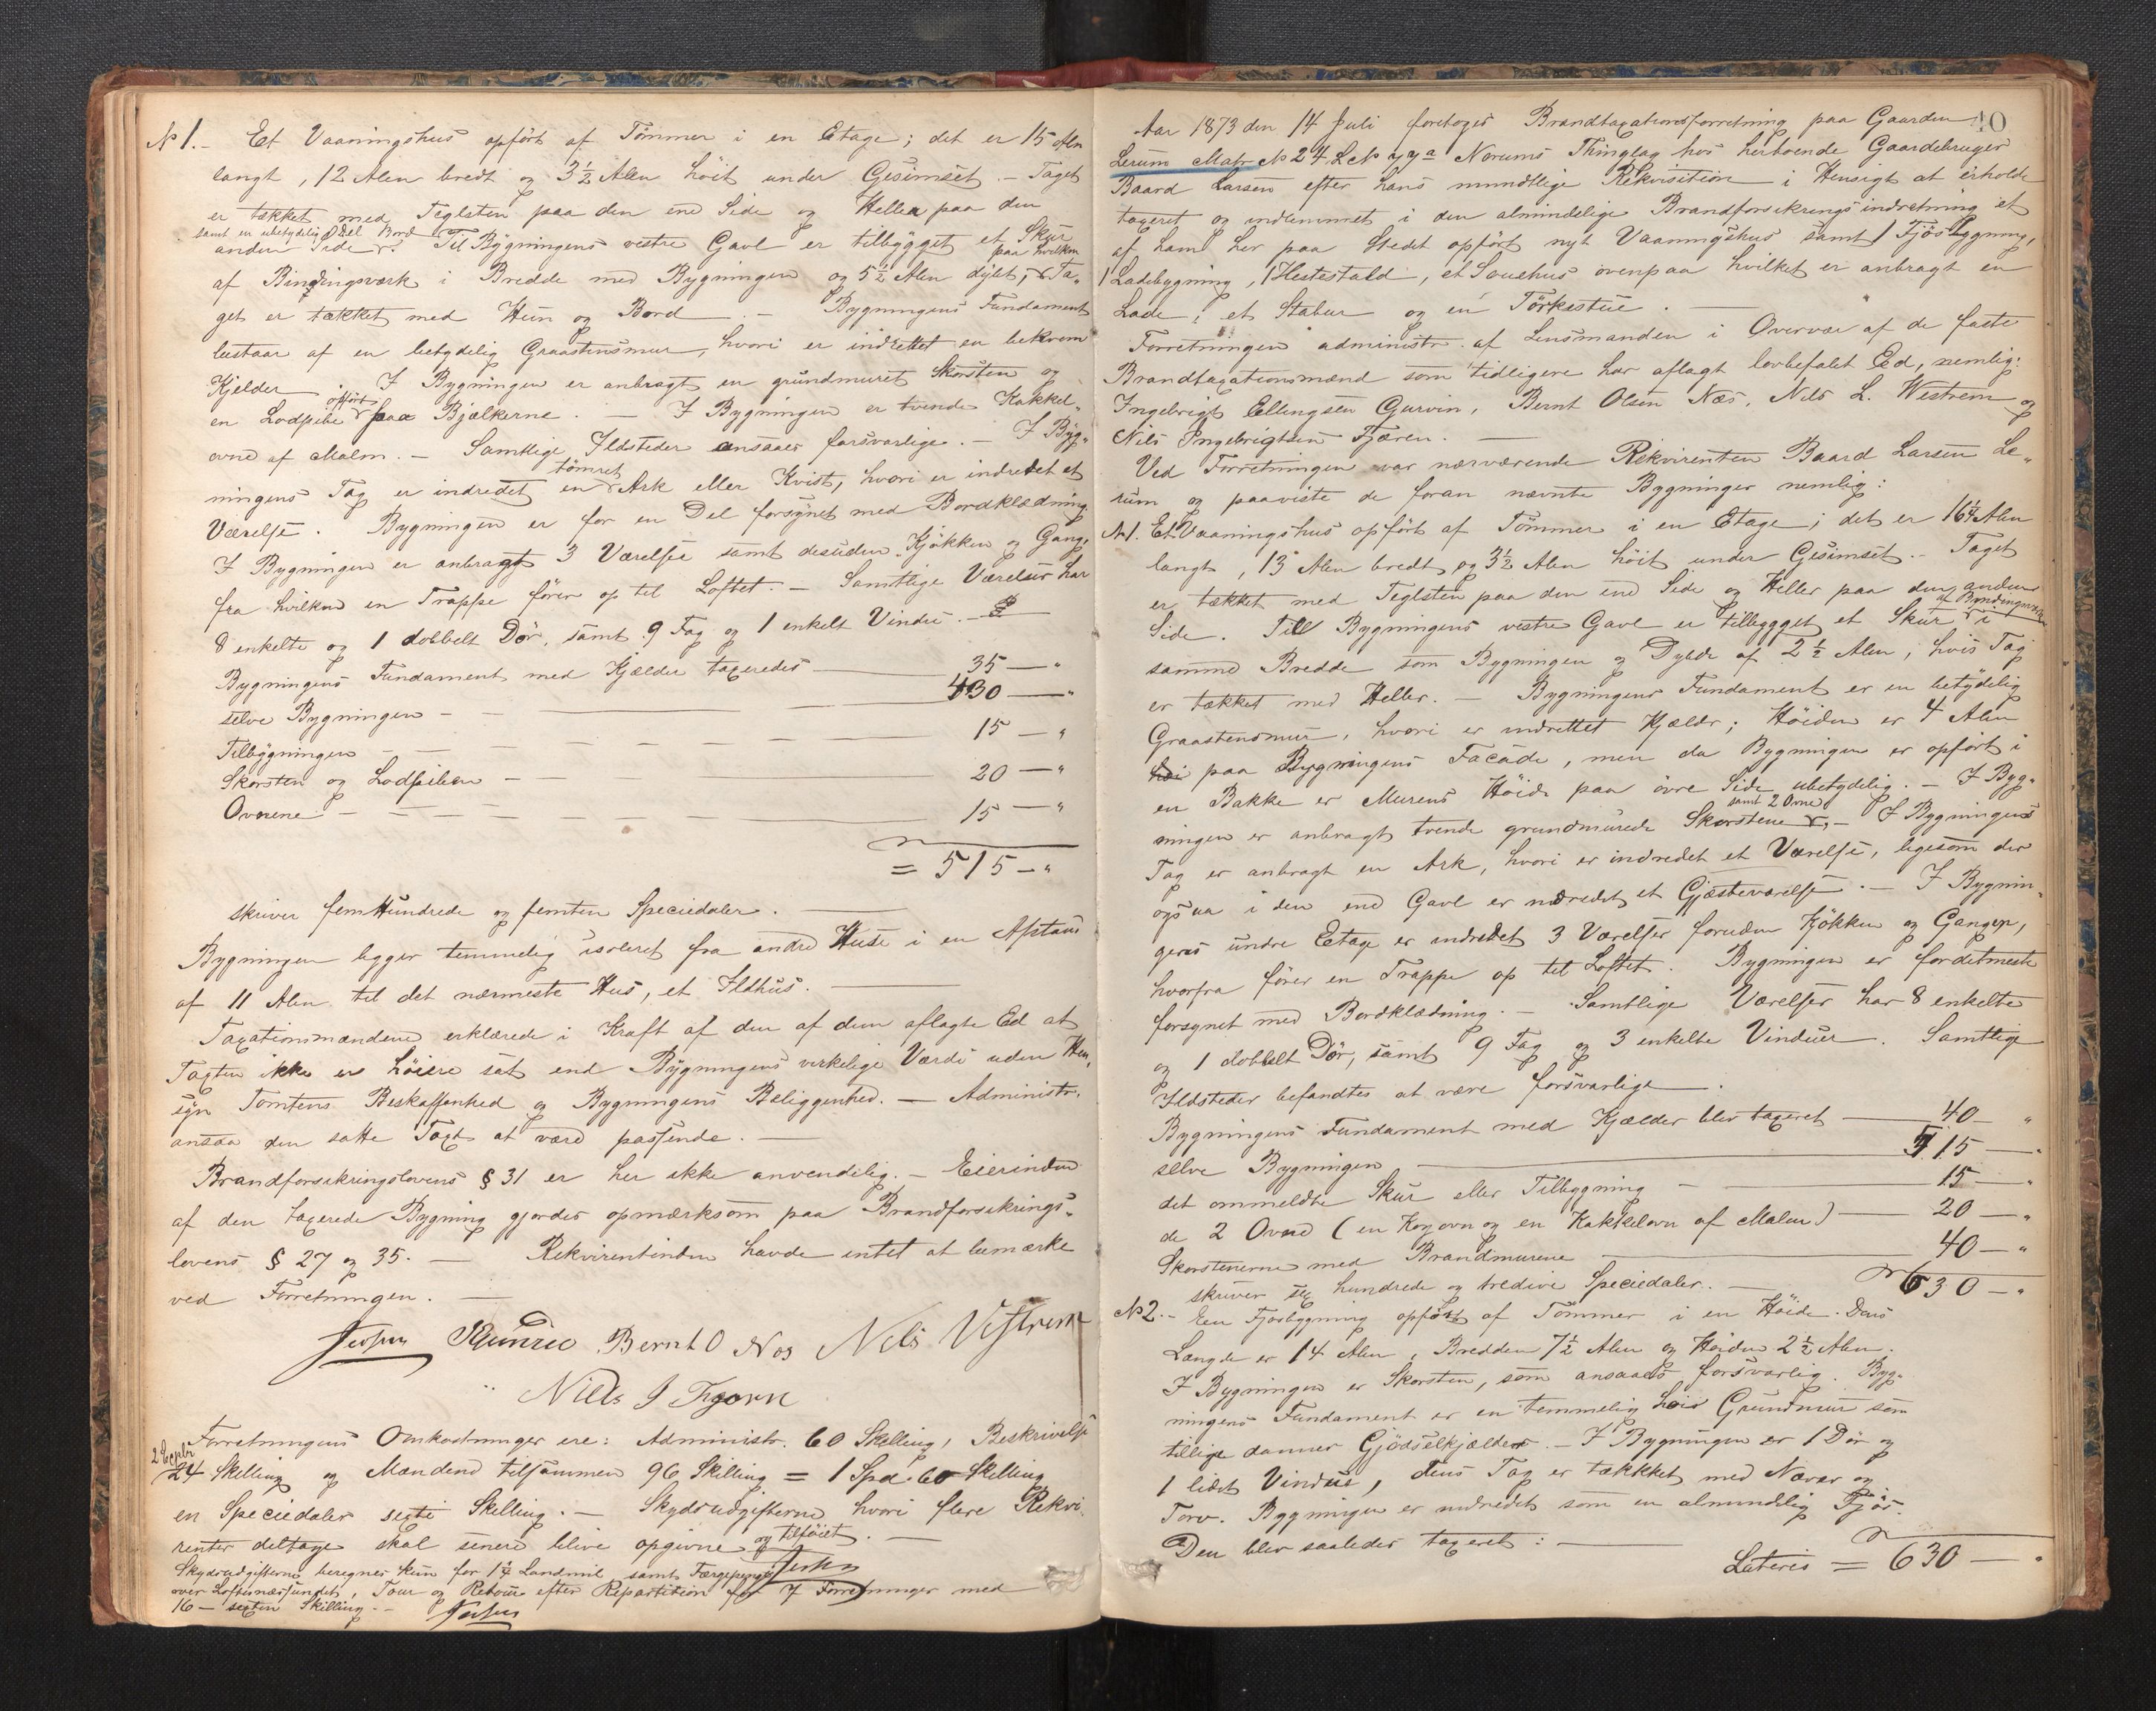 № 1. - Et Vaaningshus opført af Tømmer i en Etage; det er 15 Alen
langt, 12 Alen bredt og 3½ Alen høit under Gesimset. - Taget
er tækket med Teglsten paa den ene Side og Heller paa den
samt en ubetydelig Del Bord
anden Side. Til Bygningens vestre Gavl er tilbygget et Skur
paa hvilken
af Bindingsværk i Bredde med Bygningen og 5½ Alen dybt, Ta-
get er tækket med Hun og Bord. - Bygningens Fundament
bestaar af en betydelig Graastensmur, hvori er indrettet en bekvem
Kjelder. I Bygningen er anbragt en grundmuret Skorsten og
opført
en Lodpibe paa Bjælkerne. - I Bygningen er tvende Kakkel-
ovne af Malm. - Samtlige Ildsteder ansaaes forsvarlige. - I Byg-
tømret
ningens Tag er indredet en Ark eller Kvist, hvori er indredet et
Værelse. Bygningen er for en Del forsynet med Bordklædning.
I Bygningen er anbragt 3 Værelser samt desuden Kjøkken og Gang,
fra hvilken en Trappe fører op til Loftet. - Samtlige Værelser har
8 enkelte og 1 dobbelt Dør, samt 9 Fag og 1 enkelt Vindu. -
Bygningens Fundament med Kjælder taxeredes 35 - "
selve Bygningen - 430 - "
Tilbygningen - 15 - "
Skorsten og Lodpiben - 20 - "
Ovnene - 15 - "
= 515 - "
skriver femHundrede og femten Speciedaler.
Bygningen ligger temmelig isoleret fra andre Huse i en Afstand
af 11 Alen til det nærmeste Hus, et Ildhus.
Taxationsmændene erklærede i Kraft af den af dem aflagte Ed at
Taxten ikke er høiere sat end Bygningens virkelige Værdi uden Hen-
syn Tomtens Beskaffenhed og Bygningens Beliggenhed. - Administr.
ansaa den satte Taxt at være passende. -
Brandforsikringslovens § 31 er her ikke anvendelig. - Eierinden
af den taxerede Bygning gjordes opmærksom paa Brandforsikrings-
lovens § 27 og 35. - Rekvirentinden havde intet at bemærke
ved Forretningen. -
Bernt O Nos Nels Vestrem
Niels I Fjærn
Forretningens Omkostninger ere: Administr. 60 Skilling, Beskrivelse
24 Skilling og Mændene tilsammen 96 Skilling = 1 Spd. 60 Skilling
en Speciedaler sexti Skilling. - Skydsudgifterne hvori flere Rekvi-
renter deltage skal senere blive opgivne og tilføiet. -
Skydsudgifterne beregnes kun for 1¼ Landmil samt Færgepenge
over Loftesnæssundet, Tour og Retour efter Repartition for 7 Forretninger med
16 - sexten Skilling. -
40
Aar 1873 den 14 Juli foretoges Brandtaxationsforretning paa Gaarden
Lerum Matr № 24 L№ 47a Norums Thinglag hos hertvende Gaardebruger
Baard Larsen efter hans mundtlige Rekvisition i Hensigt at erholde
taxeret og indlemmet i den almindelige Brandforsikringsindretning et
af ham her paa Stedet opført nyt Vaaningshus samt 1 Fjøsbygning,
1 Ladebygning, 1 Hestestald, et Souehus ovenpaa hvilket er anbragt en
Lade; et Stabur og en Tørkestue.
Forretningen administr. af Lensmanden i Overvær af de faste
Brandtaxationsmænd som tidligere har aflagt lovbefalet Ed, nemlig:
Ingebrigt Ellingsen Gurvin, Bernt Olsen Næs, Nils L. Westrem og
Nils Ingebrigtsen Fjæren. -
Ved Forretningen var nærværende Rekvirenten Baard Larsen Le-
rum og paaviste de foran nævnte Bygninger nemlig:
№ 1. Et Vaaningshus opført af Tømmer i en Etage; det er 16¼ Alen
langt, 13 Alen bredt og 3½ Alen høit under Gesimset. - Taget
er tækket med Teglsten paa den ene Side og Heller paa den anden
af Bindingsværk
Side. Till Bygningens vestre Gavl er tilbygget et Skur i
samme Bredde som Bygningen og Dybde af 2½ Alen, hvis Tag
er tækket med Heller. - Bygningens Fundament er en betydelig
Graastensmur, hvori er indrettet Kjælder; Høiden er 4 Alen
paa Bygningens Facade, men da Bygningen er opført i
en Bakke er Murens Høide paa øvre Side ubetydelig. - I Byg-
samt 2 Ovne
ningen er anbragt tvende grundmurede Skorstene, - I Bygningens
Tag er anbragt en Ark, hvori er indredet et Værelse, ligesom der
ogsaa i den ene Gavl er indredet et Gjæsteværelse. - I Bygnin-
gens undre Etage er indredet 3 Værelser foruden Kjøkken og Gangen,
hvorfra fører en Trappe op til Loftet. Bygningen er fordetmeste
forsynet med Bordklædning. - Samtlige Værelser har 8 enkelte
og 1 dobbelt Dør, samt 9 Fag og 3 enkelte Vinduer. Samtlige
Ildsteder befandtes at være forsvarlige.
Bygningens Fundament med Kjælder blev taxeret 40 - "
selve Bygningen 515 - "
det ommeldte Skur eller Tilbygning 15 - "
de 2 Ovne (en Kogovn og en Kakkelovn af Malm) 20 - "
Skorstenerne med Brandmurene 40 - "
skriver sex hundrede og tredive Speciedaler. - 630 - "
№ 2. - Een Fjøsbygning opført af Tømmer i en Høide. Dens
Længde er 14 Alen, Bredden 7½ Alen og Høiden 2½ Alen.
I Bygningen er Skorsten, som ansaaes forsvarlig. Byg-
ningens Fundament er en temmelig høi Grundmur som
tillige danner Gjødselkjælder. - I Bygningen er 1 Dør og
1 lidet Vindue, dens Tag er tækkket med Næver og
Torv. Bygningen er indredet som en almindelig Fjøs.
Den blev saaledes taxeret: -
Lateris = 630 - "